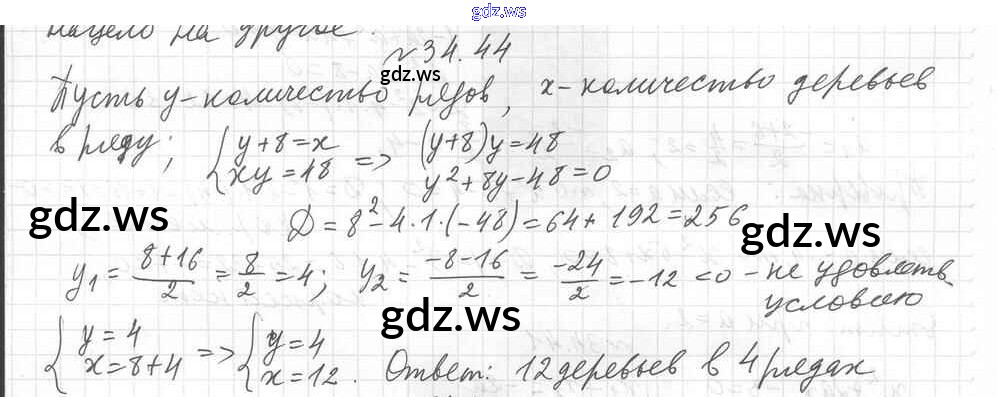 gdz.ws
нацело на другое.
№34.44
gdz.ws
Пусть y-количество рядов, x-количество деревьев
в ряду; { y+8=x => (y+8)y=48
xy=48 y²+8y-48=0
gdz.ws
D=8²-4·1·(-48)=64+192=256
gdz.ws
y₁=8+16/2=8/2=4; y₂=-8-16/2=-24/2=-12<0-не удовлетв.
условию
gdz.ws
{ y=4 => { y=4
x=8+4 x=12. Ответ: 12 деревьев в 4 рядах